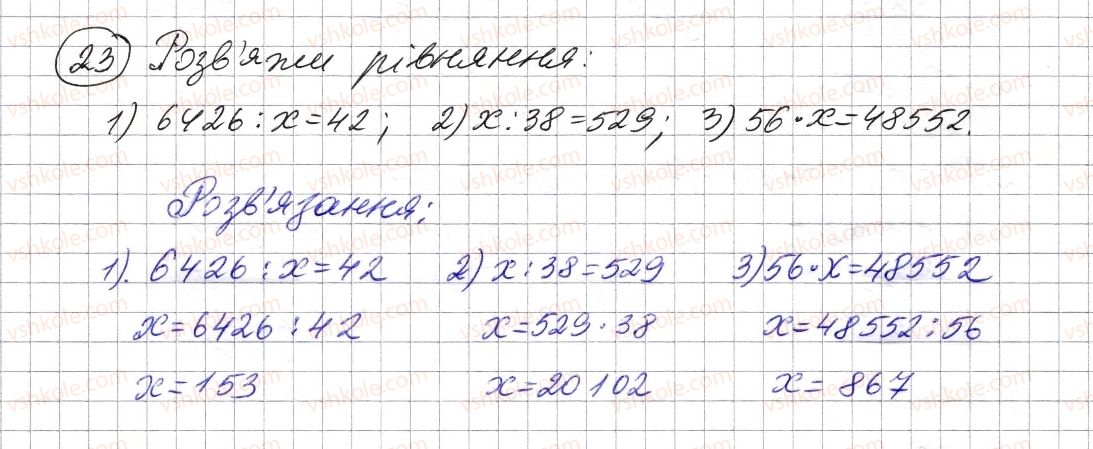 23 Розв'яжи рівняння:
1) 6426 : x = 42; 2) x : 38 = 529; 3) 56 · x = 48552.
Розв'язання:
1). 6426 : x = 42 2) x : 38 = 529 3) 56 · x = 48552
x = 6426 : 42 x = 529 · 38 x = 48552 : 56
x = 153 x = 20102 x = 867